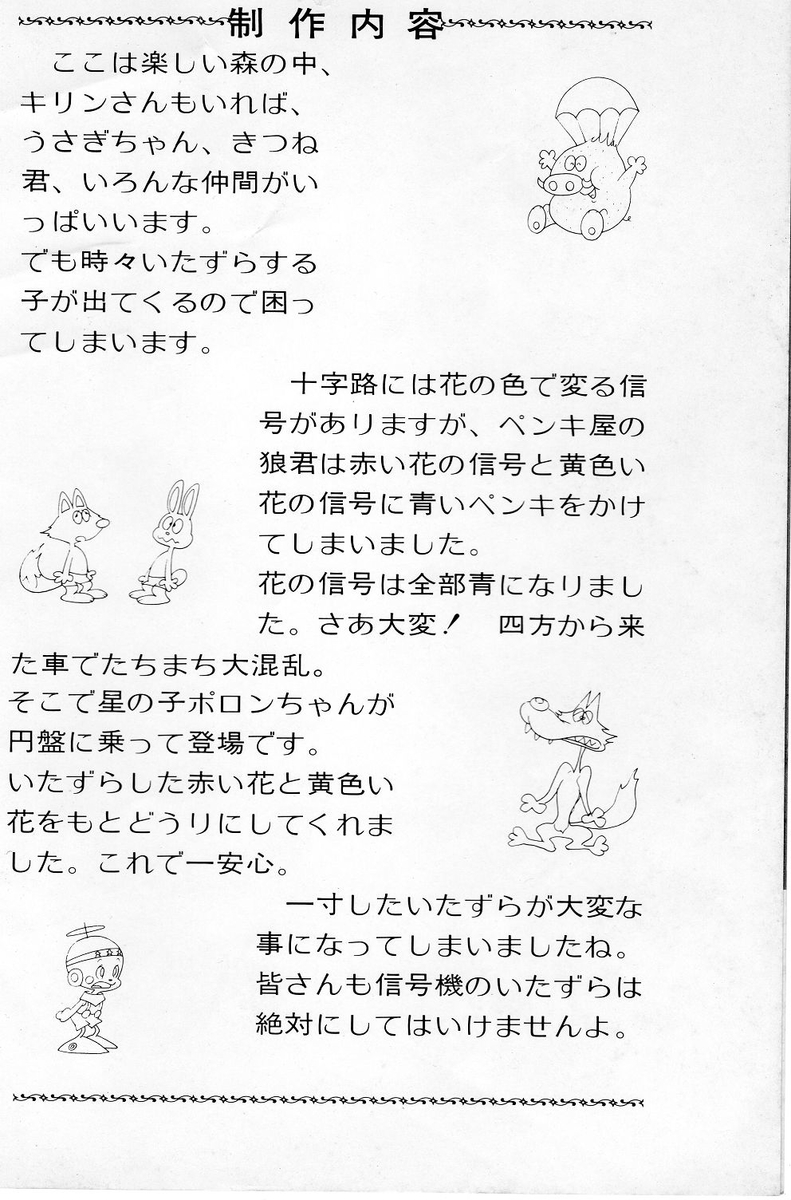 制作内容
ここは楽しい森の中、
キリンさんもいれば、
うさぎちゃん、きつね
君、いろんな仲間がい
っぱいいます。
でも時々いたずらする
子が出てくるので困っ
てしまいます。
十字路には花の色で変る信
号がありますが、ペンキ屋の
狼君は赤い花の信号と黄色い
花の信号に青いペンキをかけ
てしまいました。
花の信号は全部青になりまし
た。さあ大変！　四方から来
た車でたちまち大混乱。
そこで星の子ポロンちゃんが
円盤に乗って登場です。
いたずらした赤い花と黄色い
花をもとどうりにしてくれま
した。これで一安心。
一寸したいたずらが大変な
事になってしまいましたね。
皆さんも信号機のいたずらは
絶対にしてはいけませんよ。